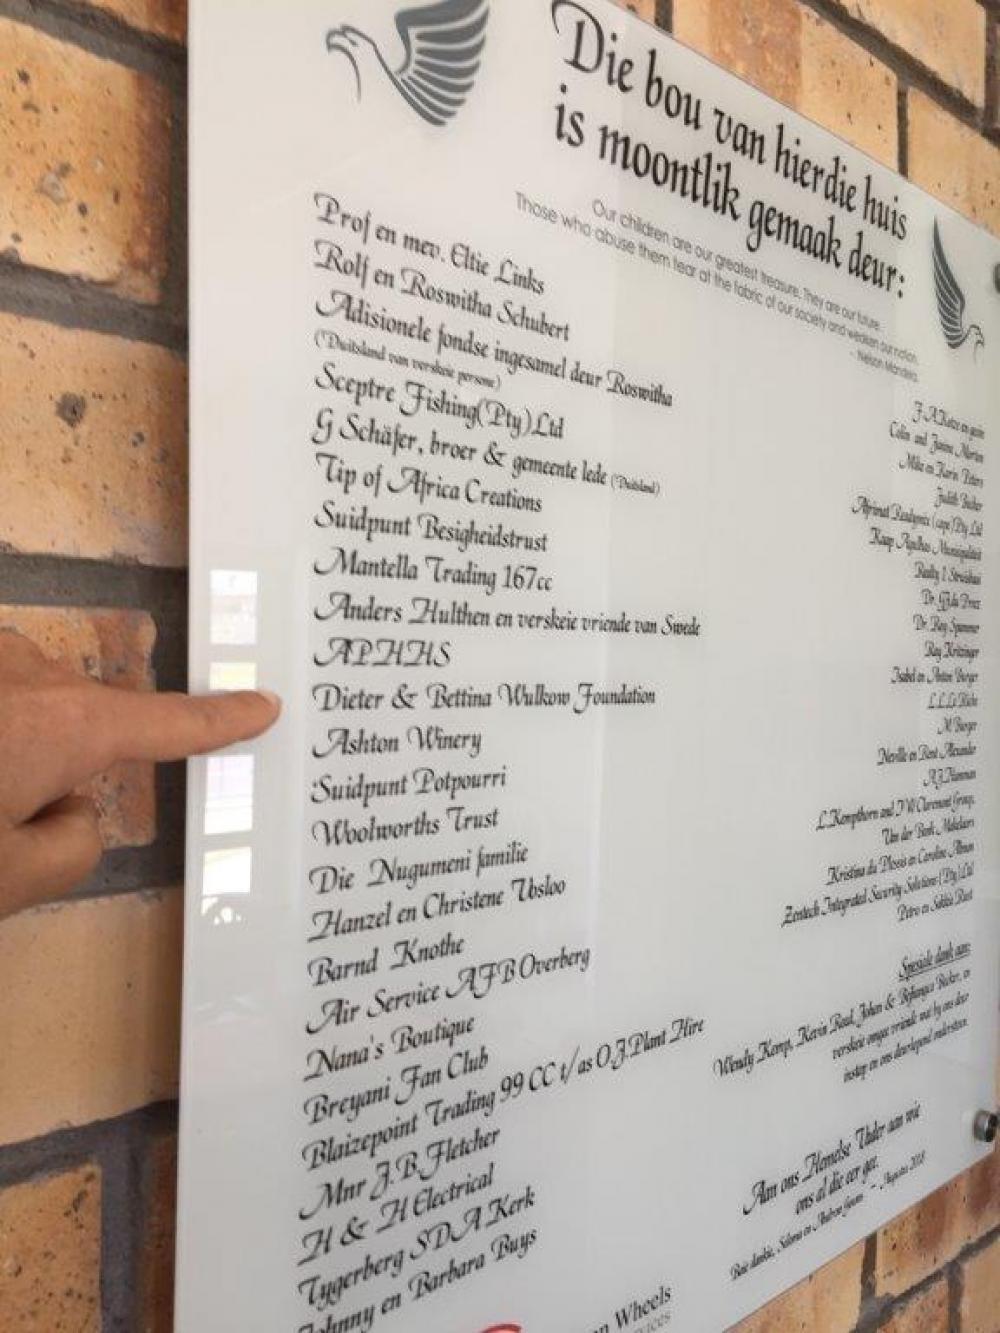 Die bou van hierdie huis
is moontlik gemaak deur:
Our children are our greatest treasure. They are our future.
Those who abuse them tear at the fabric of our society and weaken our nation.
- Nelson Mandela
Prof en mev. Eltie Links
Rolf en Roswitha Schubert
Adisionele fondse ingesamel deur Roswitha
(Duitsland van verskeie persone)
Sceptre Fishing(Pty)Ltd
G Schäfer, broer & gemeente lede (Duitsland)
Tip of Africa Creations
Suidpunt Besigheidstrust
Mantella Trading 167cc
Anders Hulthen en verskeie vriende van Swede
APHHS
Dieter & Bettina Wulkow Foundation
Ashton Winery
Suidpunt Potpourri
Woolworths Trust
Die Nugumeni familie
Hanzel en Christene Ubsloo
Barnd Knothe
Air Service AFB Overberg
Nana's Boutique
Breyani Fan Club
Blaizepoint Trading 99 CC t/as OJ Plant Hire
Mnr J.B. Fletcher
H & H Electrical
Tygerberg SDA Kerk
Johnny en Barbara Buys
Colin and
Mike en Karin Peters
Judith
Afrimat Readymix (cape)Pty Ltd
Kaap Agulhas Munisipaliteit
Realty 1 Struisbaai
Dr.
Dr. Roy
Roy Kritzinger
Isabel en Anton Burger
M Burger
Neville en René Alexander
L.Kempthorn and Claremont Group,
Van der Berk Makelaars
Kristina du Plessis en Caroline
Zentech Integrated Security Solutions (Pty)Ltd
Petro en
Spesiale dank aan:
Wendy Kemp, Kevin Baal, Johan & Becker, en
verskeie ongenoemde vriende wat by ons deur
instap en ons deurlopend ondersteun.
Aan ons Hemelse Vader aan wie
ons al die eer gee.
Baie dankie, en - Augustus 2018
Wheels